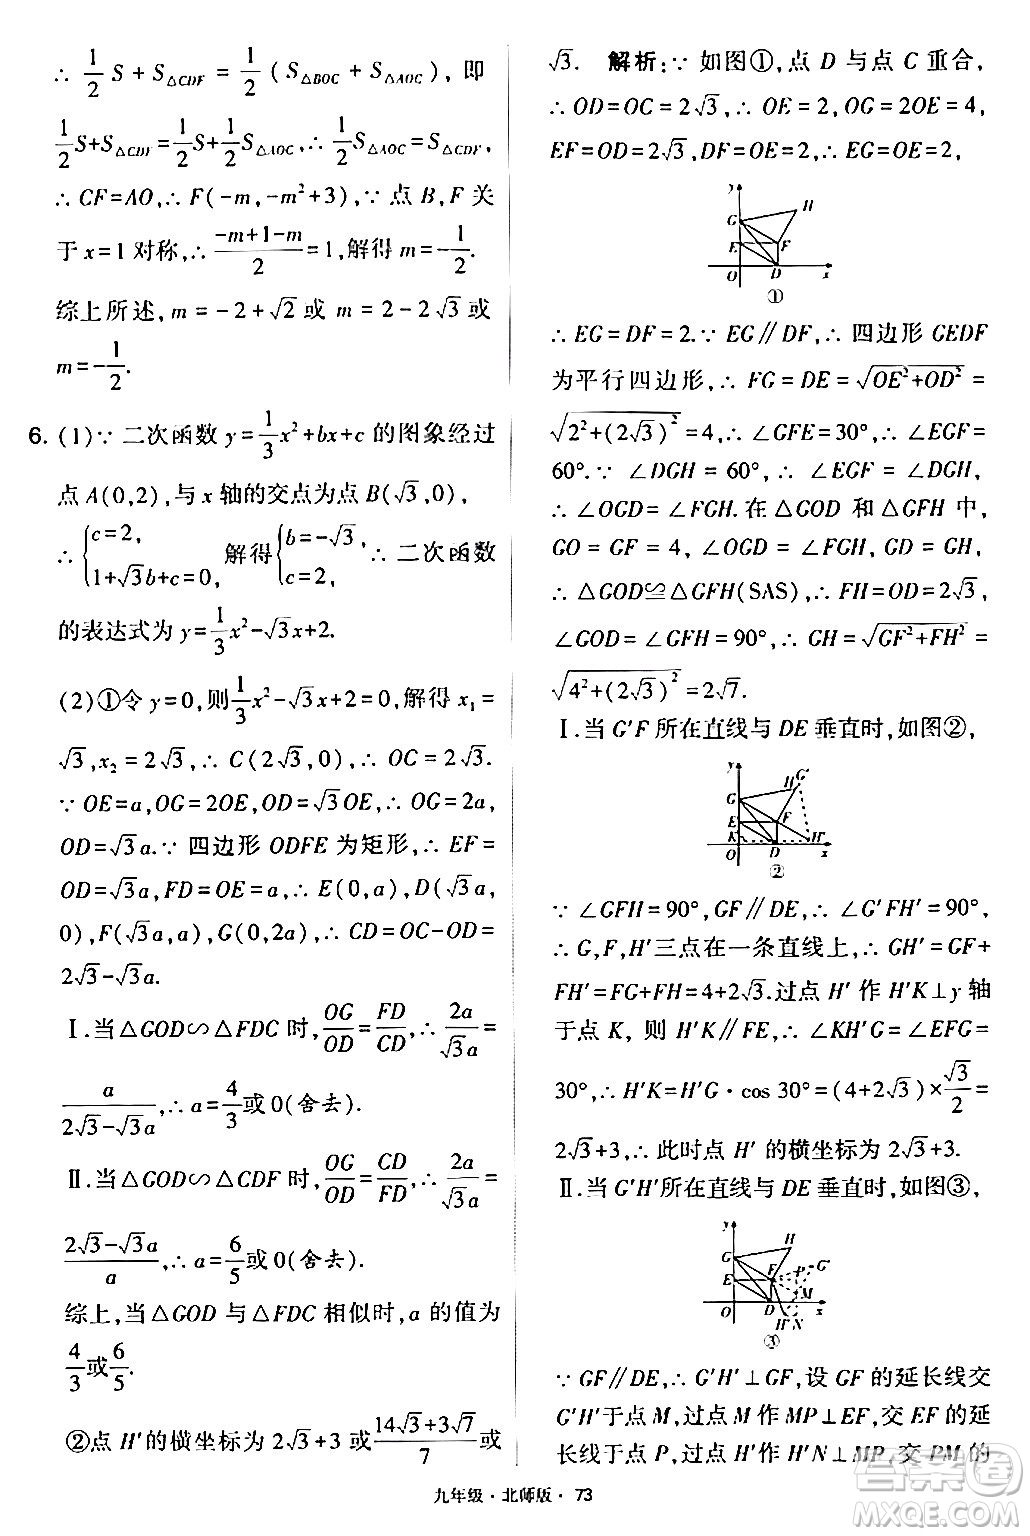 ∴ 1/2 S + S△CDF = 1/2 (S△BOC + S△AOC), 即
1/2 S+S△CDF=1/2 S+1/2 S△AOC,∴ 1/2 S△AOC=S△CDF,
∴ CF=AO,∴ F(-m,-m²+3),∵ 点 B,F 关
于 x=1 对称,∴ (-m+1-m)/2=1,解得 m=-1/2.
综上所述,m=-2+√2 或 m=2-2√3 或
m=-1/2.
6. (1)∵ 二次函数 y=1/3 x²+bx+c 的图象经过
点 A(0,2),与 x 轴的交点为点 B(√3,0),
∴ {c=2, 1+√3b+c=0, 解得{b=-√3, c=2, ∴ 二次函数
的表达式为 y=1/3 x²-√3x+2.
(2)①令 y=0,则1/3 x²-√3x+2=0,解得 x₁=
√3,x₂=2√3,∴ C(2√3,0),∴ OC=2√3.
∵ OE=a,OG=2OE,OD=√3OE,∴ OG=2a,
OD=√3a.∵ 四边形 ODFE 为矩形,∴ EF=
OD=√3a,FD=OE=a,∴ E(0,a),D(√3a,
0),F(√3a,a),G(0,2a),∴ CD=OC-OD=
2√3-√3a.
Ⅰ.当△GOD∽△FDC 时,OG/OD=FD/CD,∴ 2a/√3a=
a/(2√3-√3a),∴ a=4/3或 0(舍去).
Ⅱ.当△GOD∽△CDF 时,OG/OD=CD/FD,∴ 2a/√3a=
(2√3-√3a)/a,∴ a=6/5或 0(舍去).
综上,当△GOD 与△FDC 相似时,a 的值为
4/3或6/5.
②点 H′的横坐标为 2√3+3 或(14√3+3√7)/7或
√3. 解析:∵ 如图①,点 D 与点 C 重合,
∴ OD=OC=2√3,∴ OE=2,OG=2OE=4,
EF=OD=2√3,DF=OE=2,∴ EG=OE=2,
y
G H
E F
O D x
①
∴ EG=DF=2.∵ EG∥DF,∴ 四边形 GEDF
为平行四边形,∴ FG=DE=√(OE²+OD²)=
√(2²+(2√3)²)=4,∴ ∠GFE=30°,∴ ∠EGF=
60°.∵ ∠DGH=60°,∴ ∠EGF=∠DGH,
∴ ∠OGD=∠FGH.在△GOD 和△GFH 中,
GO=GF=4, ∠OGD=∠FGH, GD=GH,
∴ △GOD≌△GFH(SAS),∴ FH=OD=2√3,
∠GOD=∠GFH=90°,∴ GH=√(GF²+FH²)=
√(4²+(2√3)²)=2√7.
Ⅰ.当 G′F 所在直线与 DE 垂直时,如图②,
y
G H G′
E F
K H′
O D x
②
∵ ∠GFH=90°,GF∥DE,∴ ∠G′FH′=90°,
∴ G,F,H′三点在一条直线上,∴ GH′=GF+
FH′=FG+FH=4+2√3.过点 H′作 H′K⊥y 轴
于点 K, 则 H′K∥FE,∴ ∠KH′G=∠EFG=
30°,∴ H′K=H′G·cos 30°=(4+2√3)×√3/2=
2√3+3,∴ 此时点 H′的横坐标为 2√3+3.
Ⅱ.当 G′H′所在直线与 DE 垂直时,如图③,
y
G H
E F P G′
M
O D x
H′ N
③
∵ GF∥DE,∴ G′H′⊥GF,设 GF 的延长线交
G′H′于点 M,过点 M 作 MP⊥EF,交 EF 的延
长线于点 P,过点 H′作 H′N⊥MP,交 PM 的
九年级·北师版·73
答案圈
MXQE.COM